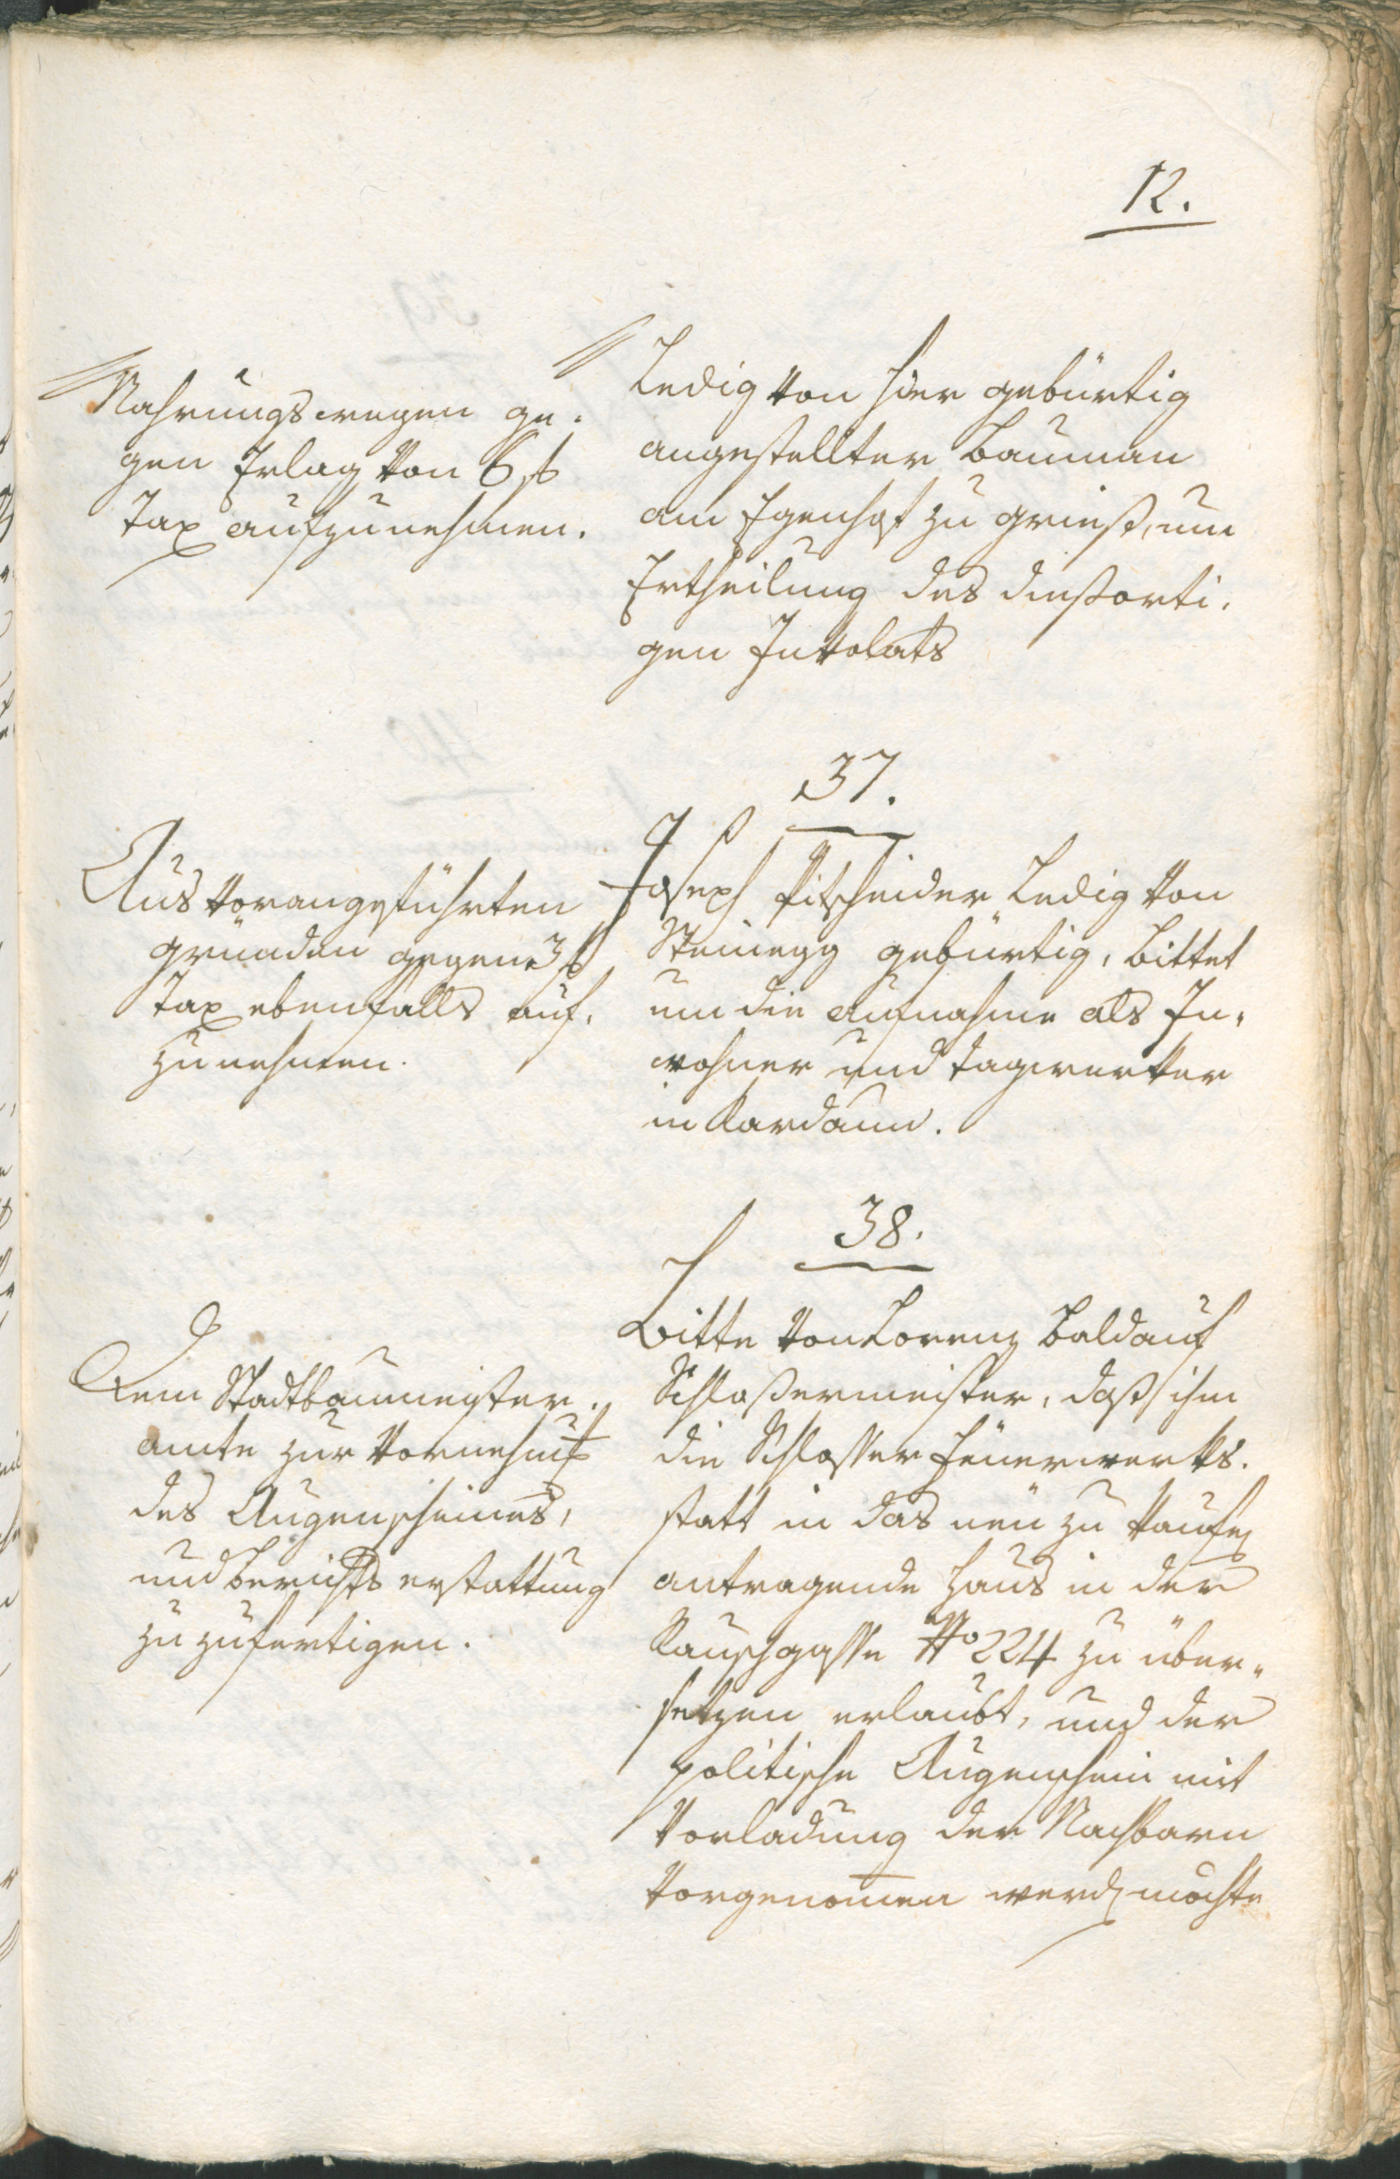 12.
Nahrungswegen ge-
gen Erlag von 6 f
Tax aufzunehmen.
Ledig von hier gebürtig
angestellter Bauman
am Egenhof zu Grieß, um
Ertheilung des dießorti-
gen Inkolats
37.
Aus vorangeführten
gründen gegen 3 f
Tax ebenfalls auf-
zunehmen.
Joseph Pitscheider Ledig von
Steinegg gebürtig, bittet
um die Aufnahme als In-
wohner und Tagwerker
in Kardaun.
38.
Dem Stadtbaumeister-
amte zur Vornehmung
des Augenscheines,
und Berichts erstattung
zuzufertigen.
Bitte von Lorenz Baldauf
Schloßermeister, daß ihm
die Schlosser Feuerwerks-
statt in das neu zu kaufen
antragende Haus in der
Rauschgasse No 224 zu über-
setzen erlaubt, und der
politische Augenschein mit
Vorladung der Nachbarn
vorgenomen werden möchte